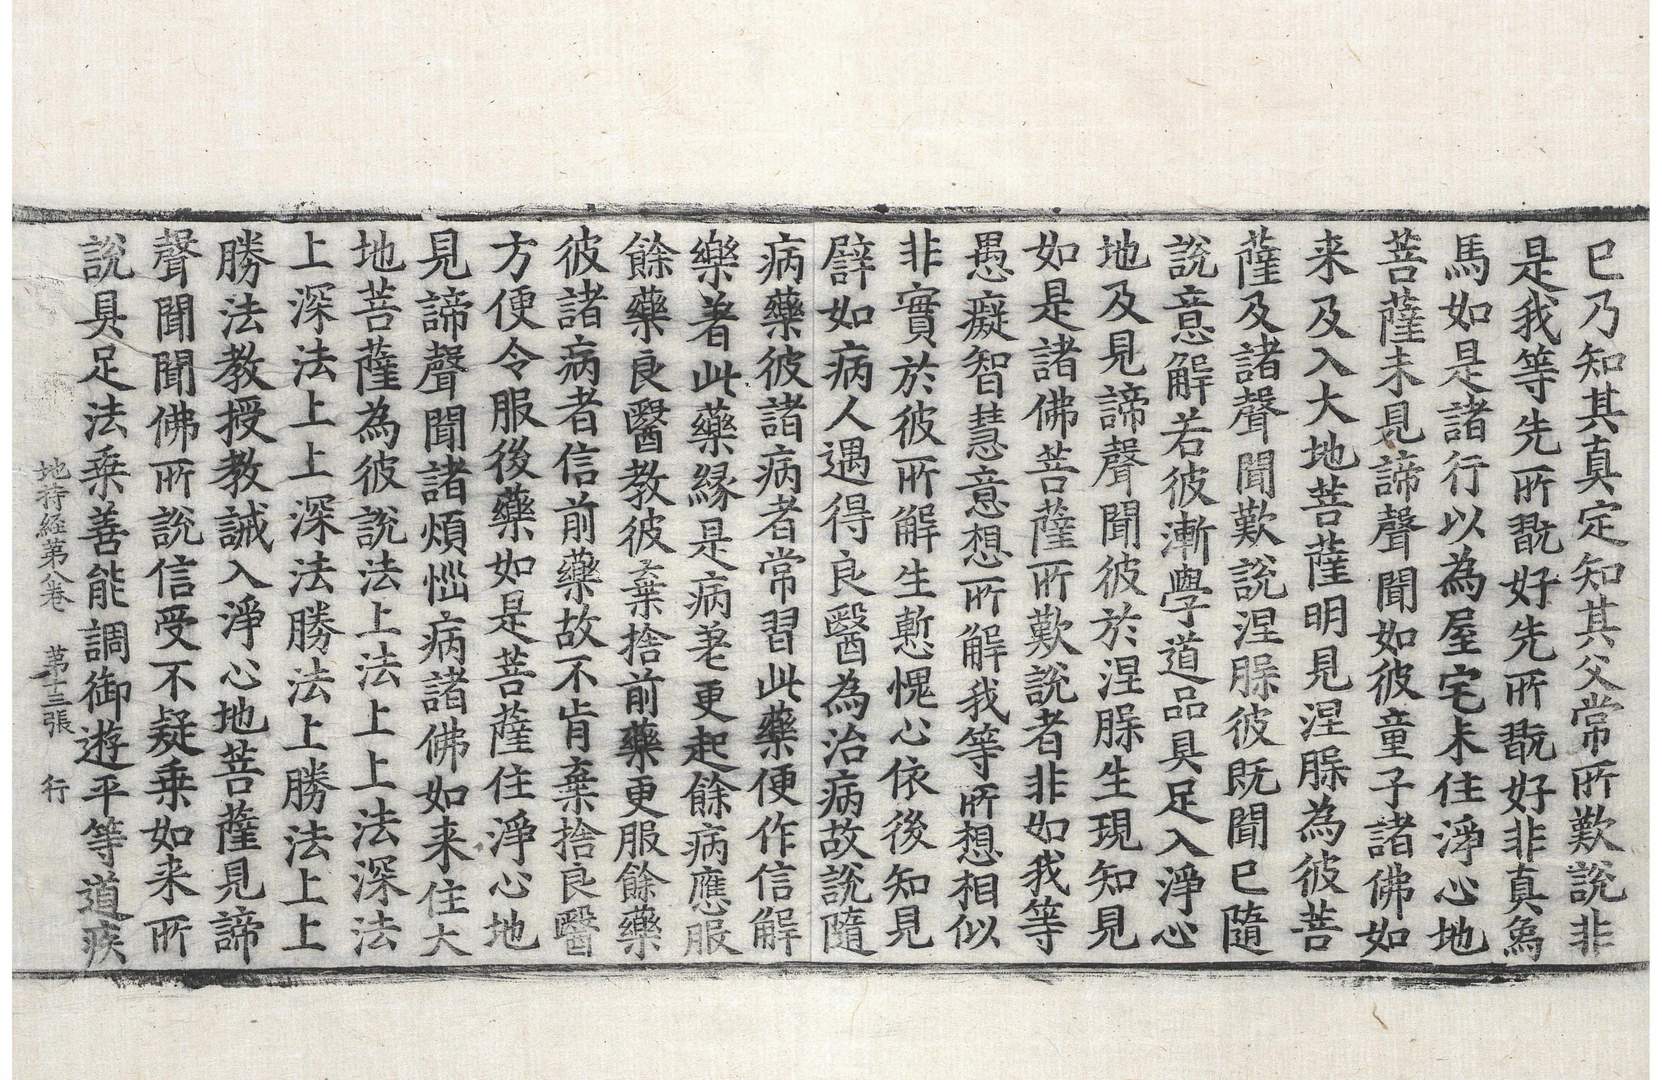 已乃知其真定知其父常所歎說非
是我等先所翫好先所翫好非真烏
馬如是諸行以為屋宅未住淨心地
菩薩未見諦聲聞如彼童子諸佛如
来及入大地菩薩明見涅脲為彼菩
薩及諸聲聞歎說涅脲彼既聞已隨
說意解若彼漸學道品具足入淨心
地及見諦聲聞彼於涅脲生現知見
如是諸佛菩薩所歎說者非如我等
愚癡智慧意想所解我等所想相似
非實於彼所解生慙愧心依後知見
譬如病人遇得良醫為治病故說隨
病藥彼諸病者常習此藥便作信解
樂著此藥緣是病差更起餘病應服
餘藥良醫教彼棄捨前藥更服餘藥
彼諸病者信前藥故不肯棄捨良醫
方便令服後藥如是菩薩住淨心地
見諦聲聞諸煩惱病諸佛如来住大
地菩薩為彼說法上法上上法深法
上深法上上深法勝法上勝法上上
勝法教授教誡入淨心地菩薩見諦
聲聞聞佛所說信受不疑乗如来所
說具足法乗善能調御遊平等道疾
地持経第八卷　第十三張　行